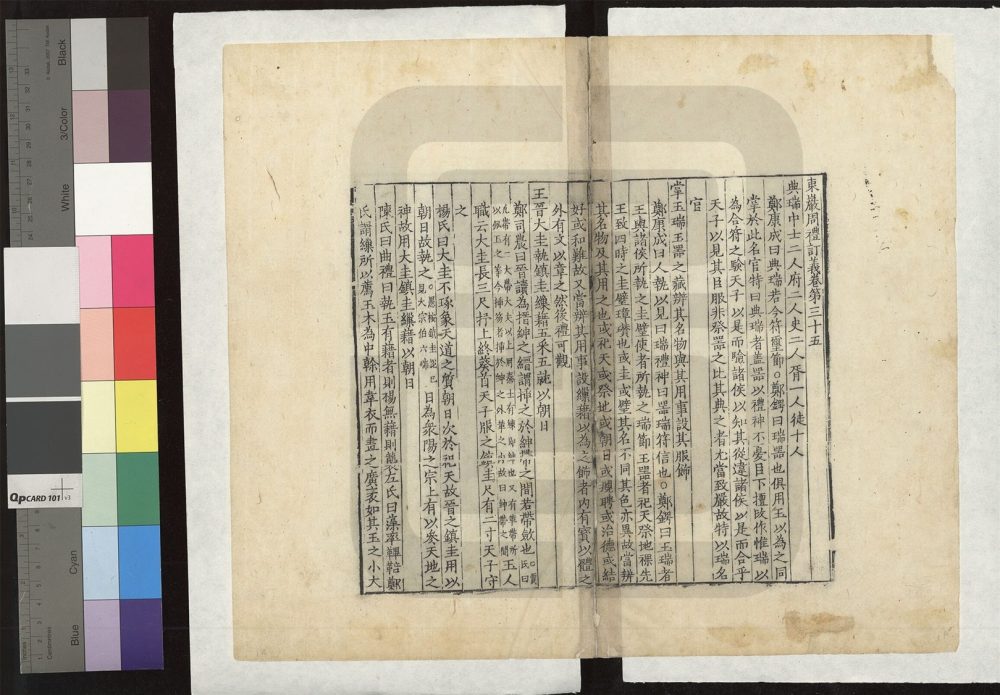 東巖周禮訂義卷第三十五
典瑞中士二人府二人史二人胥一人徒十人
鄭康成曰典瑞若今符璽節○鄭鍔曰瑞器也俱用玉以為之同
掌於此名官特曰典瑞者蓋器以禮神不憂目下擅改作惟瑞以
為合符之驗天子以是而驗諸侯以知其從違諸侯以是而合乎
天子以見其臣服非祭器之比其典之者尤當致嚴故特以瑞名
官
掌玉瑞玉器之藏辨其名物與其用事設其服飾
鄭康成曰人執以見曰瑞禮神曰器瑞符信也○鄭鍔曰玉瑞者
王與諸侯所執之圭璧使者所執之瑞節玉器者祀天祭地禮先
王致四時之圭璧璋琮也或圭或璧其名不同其色亦異故當辨
其名物及其用之也或祀天或祭地或朝日或覜聘或治德或結
好或和難故又當辨其用事設繅藉以為之飾者內有實以體之
外有文以章之然後禮可觀
王晉大圭執鎮圭繅藉五采五就以朝日
鄭司農曰晉讀為搢紳之搢謂揷之於紳帶之間若帶劒也
玉人
職云大圭長三尺杼上終葵首天子服之鎮圭尺有二寸天子守
之
楊氏曰大圭不琢象天道之質朝日次於祀天故晉之鎮圭用以
朝日故執之
日為衆陽之宗上有以參天地之
神故用大圭鎮圭繅藉以朝日
陳氏曰曲禮曰執玉有藉者則裼無藉則襲左氏曰藻率鞞鞛鄭
氏謂繅所以薦玉木為中榦用韋衣而畫之廣袤如其玉之小大
Black
3/Color
White
QPCARD 101 v3
Cyan
Blue